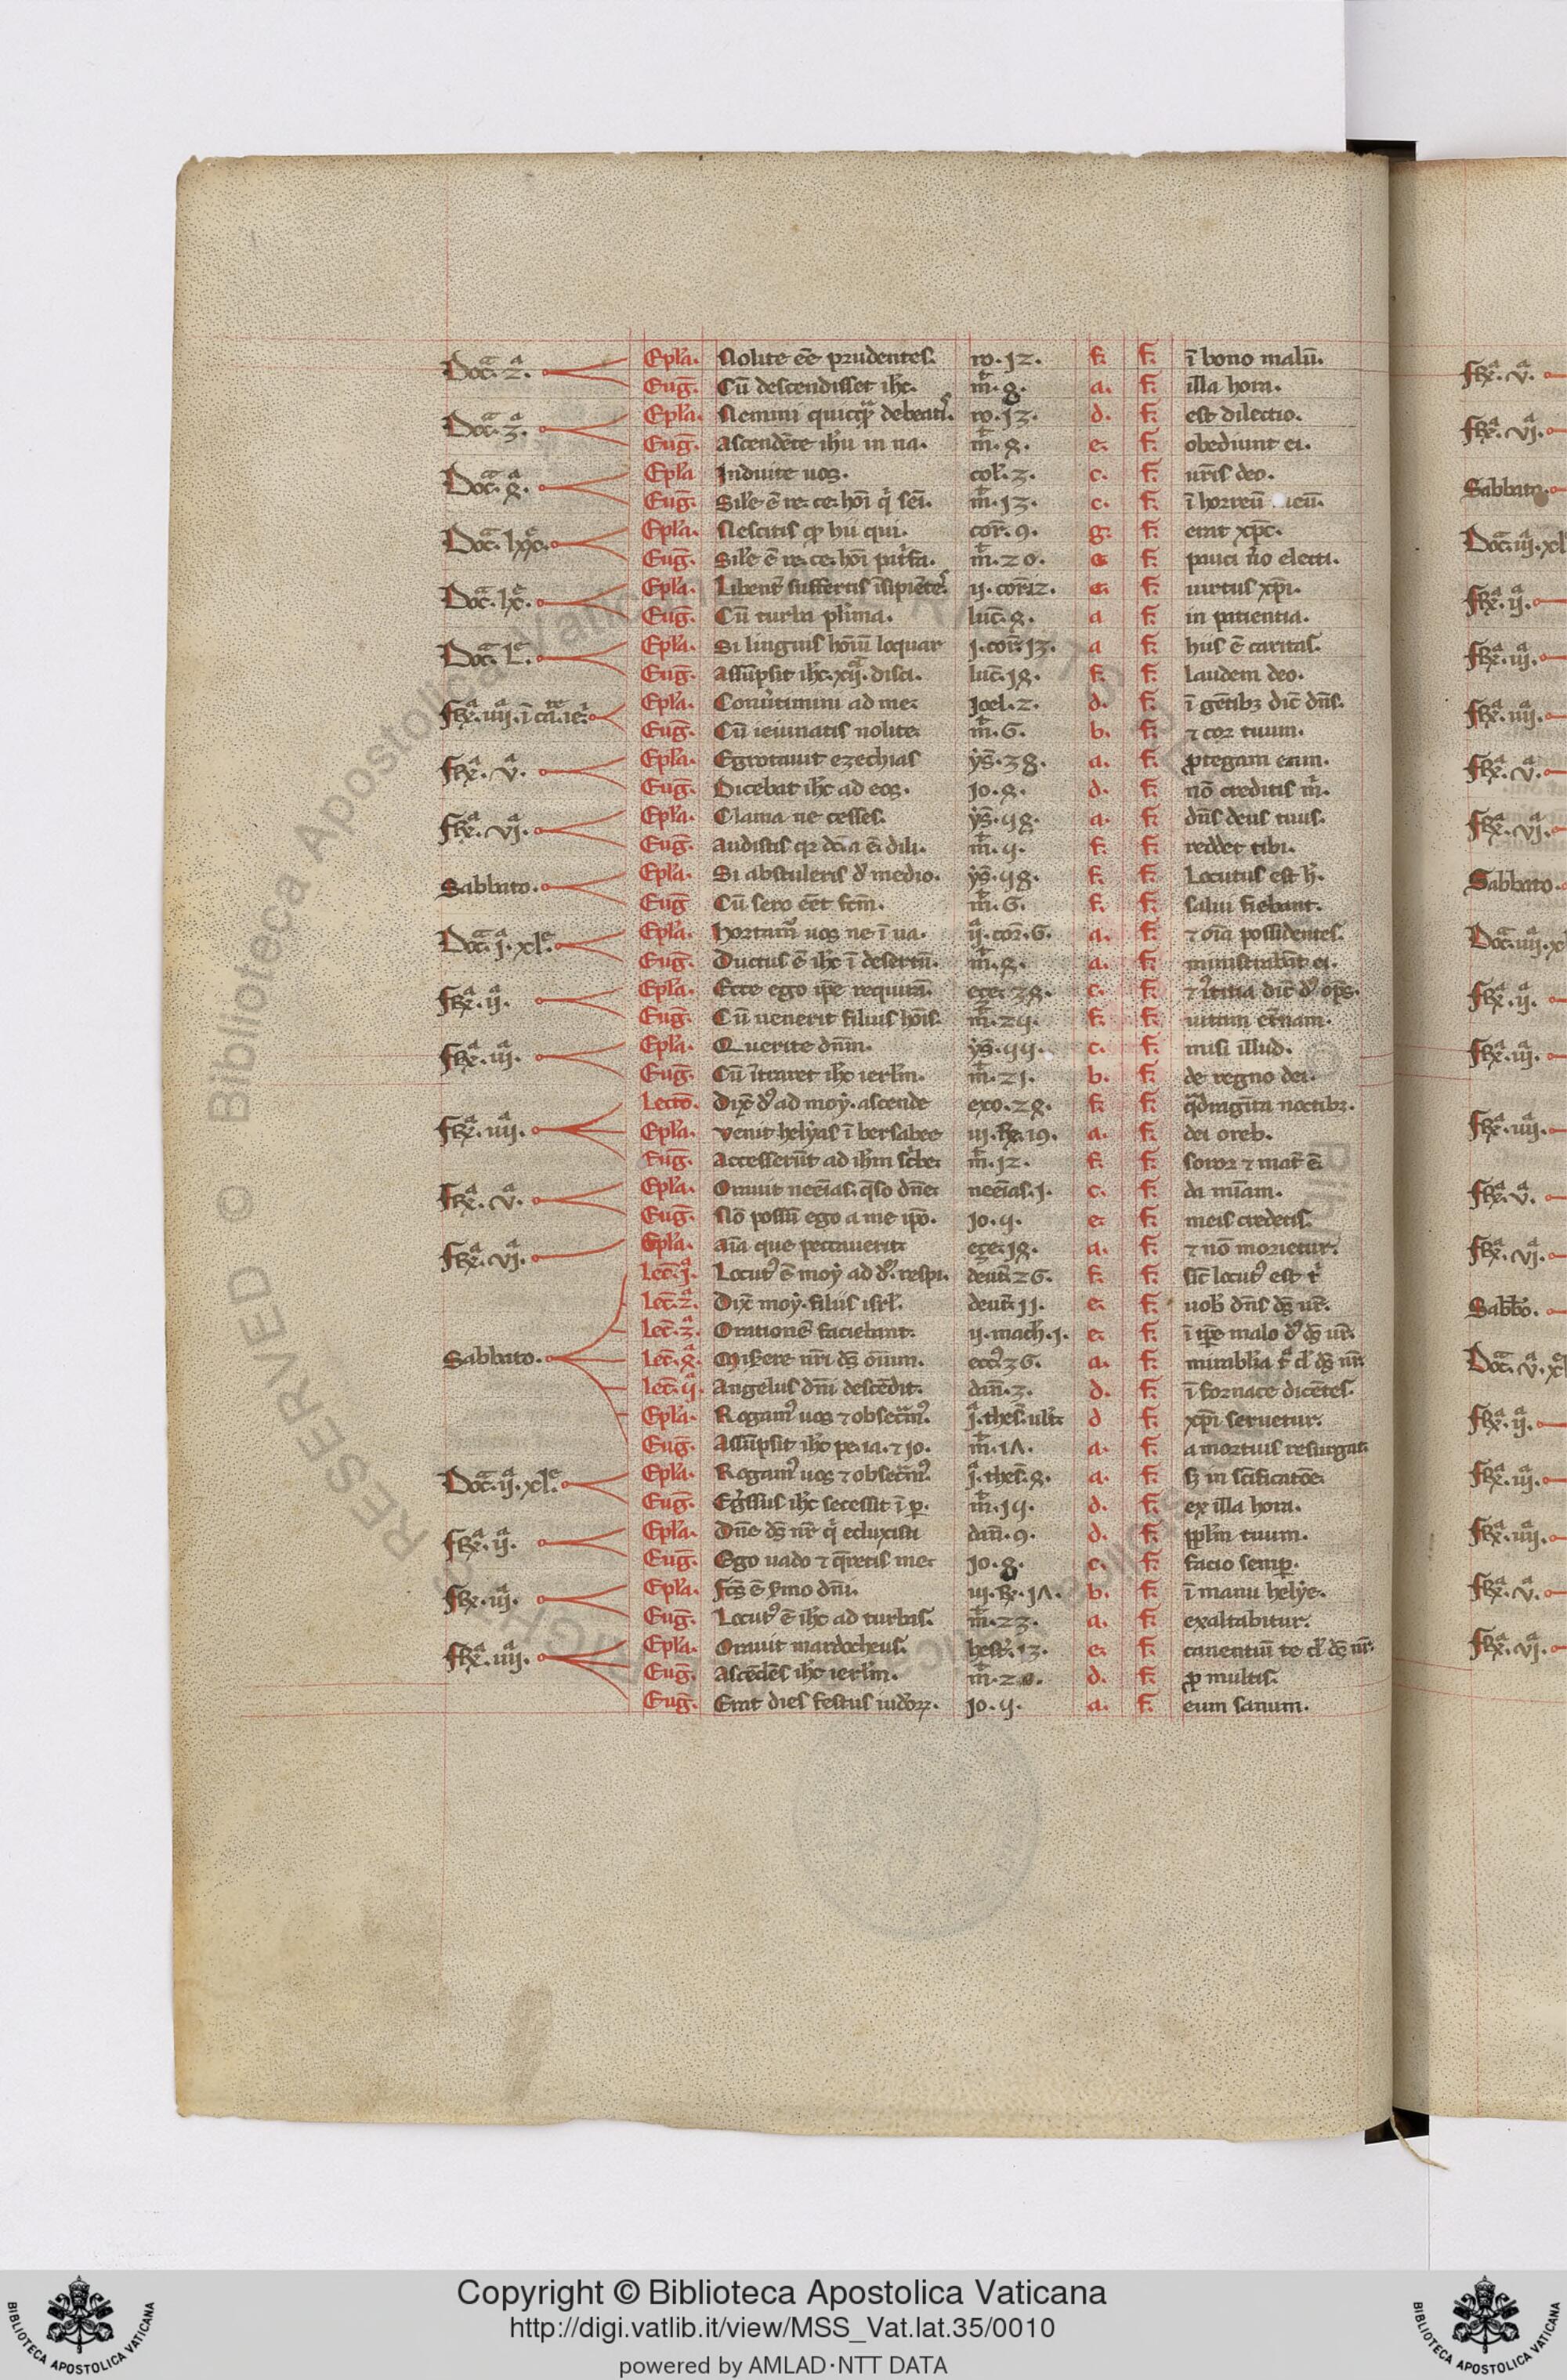 Docͣ. 2ͣ. Epl'a. Nolite ēē prudentes. ro. 12. f. f. ī bono malū.
Eug̅. Cū descendisset ih̅c. m̅t. 8. a. f. illa hora.
Docͣ. 3ͣ. Epl'a. Nemini quicq̄ debeatis. ro. 13. d. f. est dilectio.
Eug̅. Ascendēte ih̅u in na. m̅t. 8. e. f. obediunt ei.
Docͣ. 4ͣ. Epl'a Induite uos. col'. 3. c. f. ur̅is deo.
Eug̅. Sil'e ē re. ce. hoı̅ q̇ sēı. m̅t. 13. c. f. ī horreū meū.
Docͣ. lxxͤ. Epl'a. Nescitis qp hii qui. cor̅. 9. g. f. erat xp̅c.
Eug̅. Sil'e ē re. ce. hoı̅ pr̅ifa. m̅t. 20. a f. pauci u̇o electi.
Docͣ. lxͤ. Epl'a. Libent' suffertis īsipiētes. ij. cor̅ 12. e. f. uirtus xp̅i.
Eug̅. Cū turba pl'ima. luc̅. 8. a f. in patientia.
Docͣ. lͤ. Epl'a. Si linguis hoı̅ū loquar j. cor̅. 13. a f. hiis ē caritas.
Eug̅. Assūpsit ih̅c. xij. disci. luc̅. 18. f. f. laudem deo.
fer̅ͣ. iiij. ī ca. ie. Epl'a. Conu̇timini ad me. Joel. 2. d. f. ī gētibꝫ dic̅ dn̅s.
Eug̅. Cū ieiunatis nolite. m̅t. 6. b. f. ⁊ cor tuum.
fer̅ͣ. vͣ. Epl'a. Egrotauit ezechias ys̅. 38. a. f. ꝓtegam eam.
Eug̅. Dicebat ih̅c ad eos. Jo. 8. d. f. nō creditis m̅.
fer̅ͣ. vjͣ. Epl'a. Clama ne cesses. ys̅. 58. a. f. dn̅s deus tuus.
Eug̅. Audistis qr dc̅m ē dili. m̅t. 5. f. f. reddet tibi.
Sabbato. Epl'a. Si abstuleris d' medio. ys̅. 58. f. f. Locutus est h'.
Eug̅ Cū sero eēt fc̅m. m̅t. 6. f. f. salui fiebant.
Docͣ. jͣ. xlͤ. Epl'a. Hortam' uos ne ī ua. ijͣ. cor̅. 6. a. f. ⁊ oı̅a possidentes.
Eug̅. Ductus ē ih̅c ī desertū. m̅t. 4. a. f. ministrabāt ei.
fer̅ͣ. ijͣ. Epl'a. Ecce ego ip̅e requirā. eçe. 38. c. f. ⁊ iu̇titia dic̅ d' op̅s.
Eug̅. Cū uenerit filius hoı̅s. m̅t. 25. f. f. uitam et̅nam.
fer̅ͣ. iijͣ. Epl'a. Querite dn̅m. ys̅. 55. c. f. misi illud.
Eug̅. Cū ītraret ih̅c ierl'm. m̅t. 21. b. f. de regno dei.
fer̅ͣ. iiijͣ. Lectō. Dix̅ d' ad moy. ascende exo. 24. f. f. q̇dragīta noctibꝫ.
Epl'a. Venit helyas ī bersabee iij. Re. 19. a. f. dei oreb.
Eug̅. Accesserūt ad ih̅m sc̅be. m̅t. 12. f. f. soror ⁊ mat' ē.
fer̅ͣ. vͣ. Epl'a. Orauit neeı̅as. q̄so dn̅e. neeı̅as. j. c. f. da mı̅am.
Eug̅. Nō possū ego a me ip̅o. Jo. 5. e. f. meis credetis.
fer̅ͣ. vjͣ. Epl'a. Aı̅a que peccauerit eçe. 18. a. f. ⁊ nō morietur.
Lec̅. jͣ. Locut' ē moy ad d'. respi. deut̅. 26. f. f. sic̅ locut' est t'
Lec̅. 2ͣ. Dix̅ moy. filiis isrl'. deut̅. 11. e. f. uob' dn̅s ds̅ ur̅.
Lec̅. 3ͣ. Orationē faciebant. ij. mach̅. j. e. f. ī tp̅e malo d' ds̅ ur̅.
Sabbato. Lec̅. 4ͣ. Mis̅ere nr̅i ds̅ oı̅um. ecc̅'. 36. a. f. mirabl'ia t' cl' ds̅ nr̅.
Lec̅. 5ͣ. Angelus dn̅i descēdit. dan̅. 3. d. f. ī fornace dicētes.
Epl'a. Rogam' uos ⁊ obsec̅m'. jͣ. thes̅. ult. d f. xp̅i seruetur.
Eug̅. Assūpsit ih̅c pe. ia. ⁊ jo. m̅t. 17. a. f. a mortuis resurgat.
Docͣ. ijͣ. xlͤ. Epl'a. Rogam' uos ⁊ obsec̅m'. jͣ. thes̅. 4. a. f. sꝫ in sc̅ificatōe.
Eug̅. Eg̅ssus ih̅c secessit ī ꝑ. m̅t. 15. d. f. ex illa hora.
fer̅ͣ. ijͣ. Epl'a. Dn̅e ds̅ nr̅ q̇ eduxisti dan̅. 9. d. f. ppl'm tuum.
Eug̅. Ego uado ⁊ q̄retis me. Jo. 8. c. f. facio semꝑ.
fer̅ͣ. iijͣ. Epl'a. Fcs̅ ē s̅mo dn̅i. iij. Re. 17. b. f. ī manu helye.
Eug̅. Locut' ē ih̅c ad turbas. m̅t. 23. a. f. exaltabitur.
fer̅ͣ. iiijͣ. Epl'a. Orauit mardocheus. hest'. 13. e. f. canentiū te cl' ds̅ nr̅.
Eug̅. Ascēdēs ih̅c ierl'm. m̅t. 20. d. f. ꝓ multis.
Eug̅. Erat dies festus iud'oꝝ. Jo. 5. a. f. eum sanum.
fer̅ͣ. vͣ.
fer̅ͣ. vjͣ.
Sabbato.
Docͣ. iijͣ. xl
fer̅ͣ. ijͣ.
fer̅ͣ. iijͣ.
fer̅ͣ. iiijͣ.
fer̅ͣ. vͣ.
fer̅ͣ. vjͣ.
Sabbato.
Docͣ. iiijͣ. xl
fer̅ͣ. ijͣ.
fer̅ͣ. iijͣ.
fer̅ͣ. iiijͣ.
fer̅ͣ. vͣ.
fer̅ͣ. vjͣ.
Sabb'o.
Docͣ. vͣ. xl
fer̅ͣ. ijͣ.
fer̅ͣ. iijͣ.
fer̅ͣ. iiijͣ.
fer̅ͣ. vͣ.
fer̅ͣ. vjͣ.
Copyright © Biblioteca Apostolica Vaticana
http://digi.vatlib.it/view/MSS_Vat.lat.35/0010
powered by AMLAD·NTT DATA
BIBLIOTECA APOSTOLICA VATICANA
BIBLIOTECA APOSTOLICA VATICANA